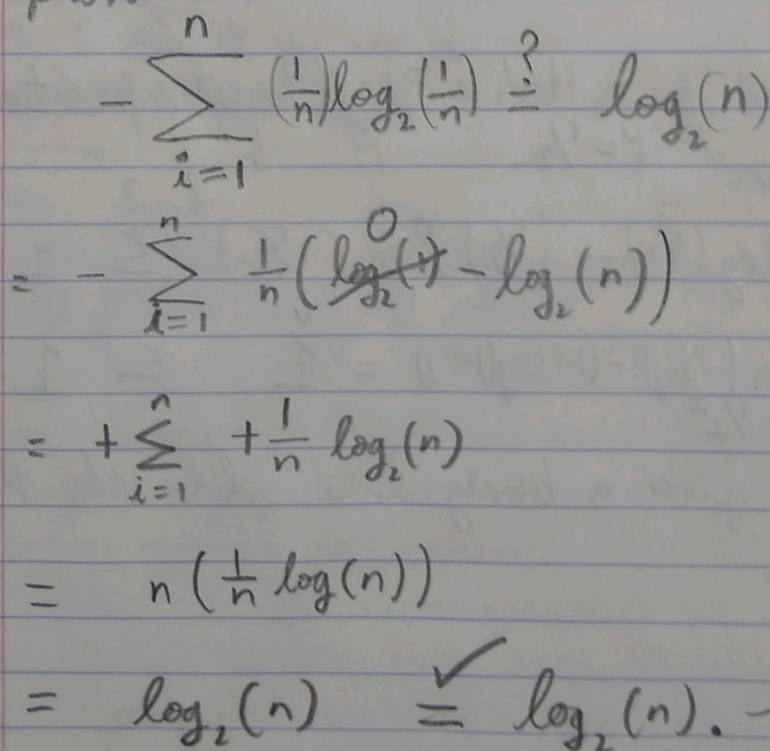 - n∑i=1 (1/n)log₂(1/n) ≟ log₂(n)
= - n∑i=1 1/n (log₂(1) 0 - log₂(n))
= + n∑i=1 + 1/n log₂(n)
= n (1/n log(n))
= log₂(n) =✓ log₂(n).